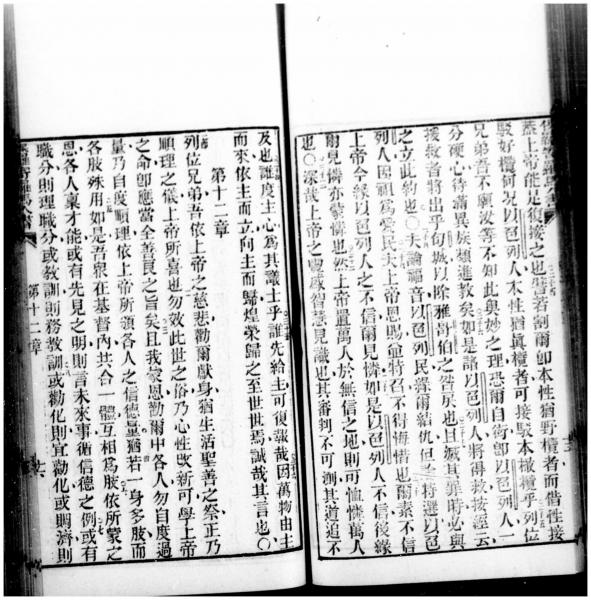 蓋上帝能足復接之也譬若割爾卽本性猶野欖者而借性接
駁好欖何況以色列人本性猶眞欖者可接駁本橄欖乎列位
兄弟吾不願汝等不知此奧妙之理恐爾自衒卽以色列人一
分硬心待滿異族類進敎矣如是諸以色列人將得救按經云
援救者將出乎旬城以除雅哥伯之咎戾也且滅其罪時必與
之立此約也〇夫論福音以色列民為爾結仇但特選以色
列人因祖為愛民夫上帝恩賜竝特召不得悔惜也爾素不信
上帝今緣以色列人之不信爾見憐如是以色列人不信後緣
爾見憐亦蒙憐也然上帝置萬人於無信之地則可恤憐萬人
也〇深哉上帝之豐盛智慧見識也其審判不可測其道追不
及也誰度主心為其議士乎誰先給主可復報哉因萬物由主
而來依主而立向主而歸煌榮歸之至世世焉誠哉其言也〇
第十二章
列位兄弟吾依上帝之慈悲勸爾獻身猶生活聖善之祭正乃
順理之儀上帝所喜也勿效此世之俗乃心性改新可學上帝
之命卽應當全善良之旨矣且我蒙恩勸爾中各人勿自度過
量乃自度順理依上帝所頒各人之信德量猶若一身多肢而
各肢殊用如是吾眾在基督內共合一體互相為肢依所蒙之
恩各人稟才能或有先見之明則言未來事循信德之例或有
職分則理職分或敎訓則務敎訓或勸化則宜勸化或賙濟則
第十二章